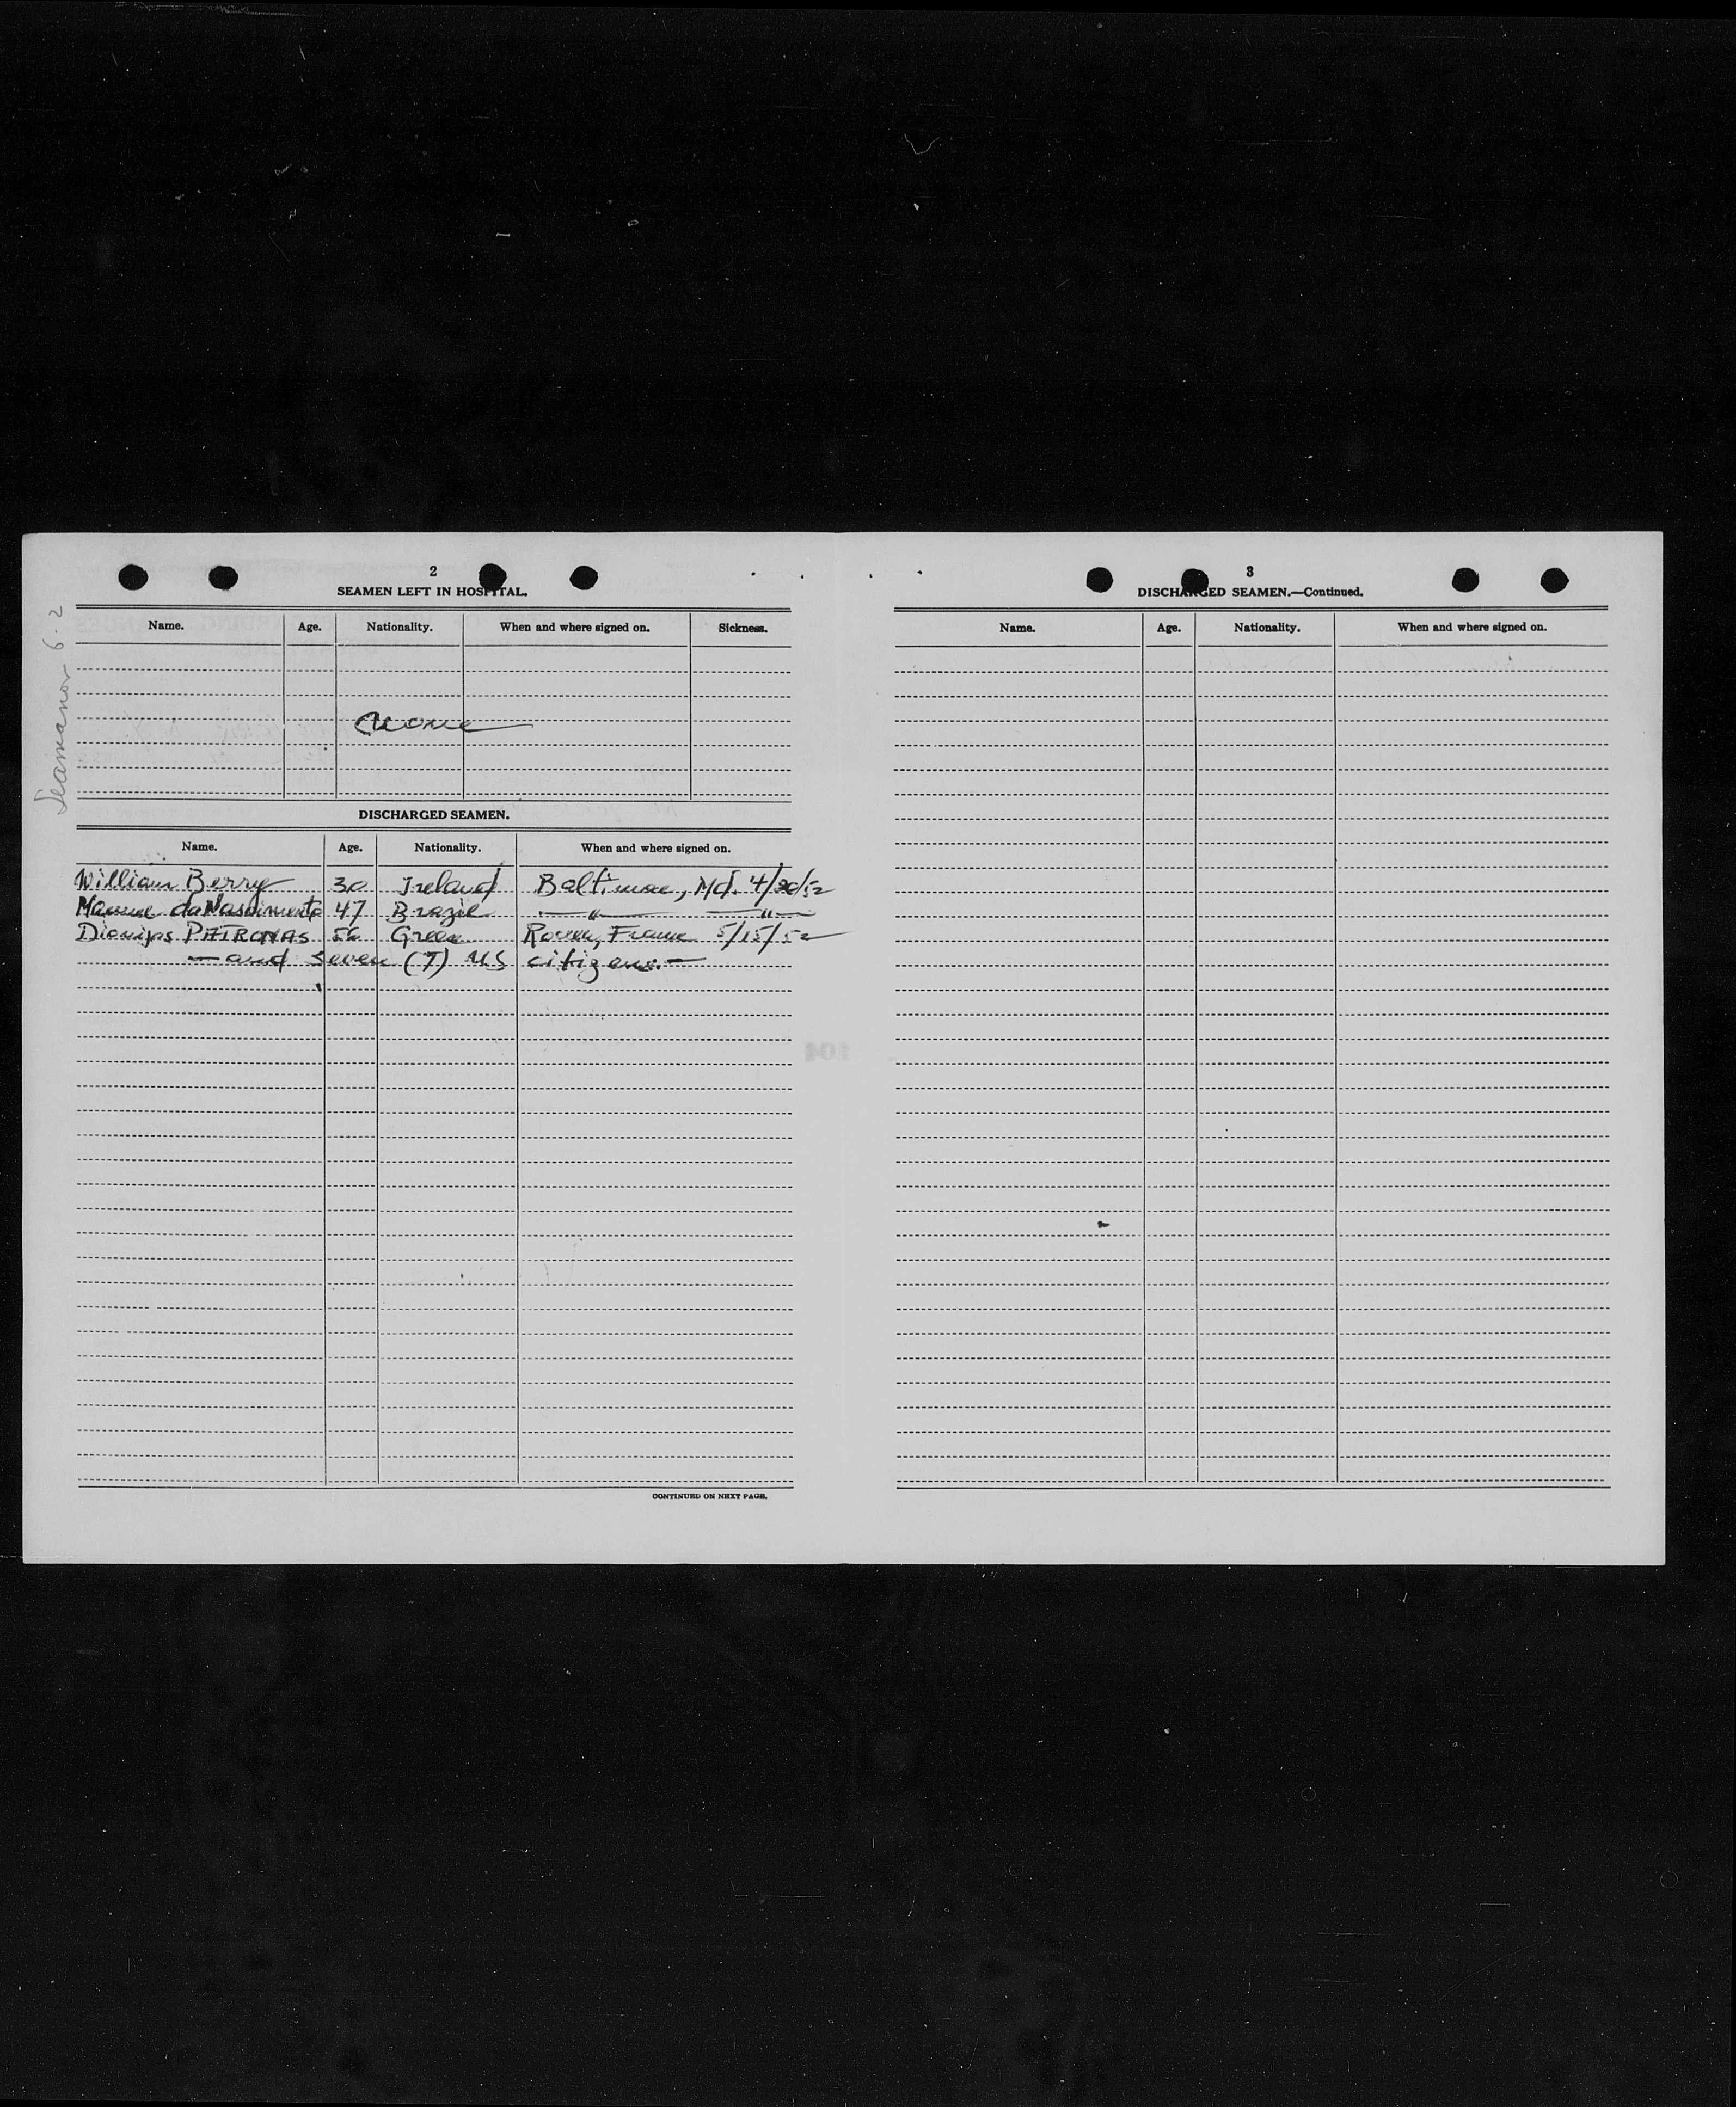 2
SEAMEN LEFT IN HOSPITAL.
Name. Age. Nationality. When and where signed on. Sickness.
None
DISCHARGED SEAMEN.
Name. Age. Nationality. When and where signed on.
William Berry 30 Ireland Baltimore, Md. 4/30/52
Manuel da Nascimento 47 Brazil —"— —"—
PATRONAS 56 Greece Rouen, France 5/15/52
— and seven (7) US citizens. —
CONTINUED ON NEXT PAGE.
Seamanor 6.2
104
3
DISCHARGED SEAMEN.—Continued.
Name. Age. Nationality. When and where signed on.